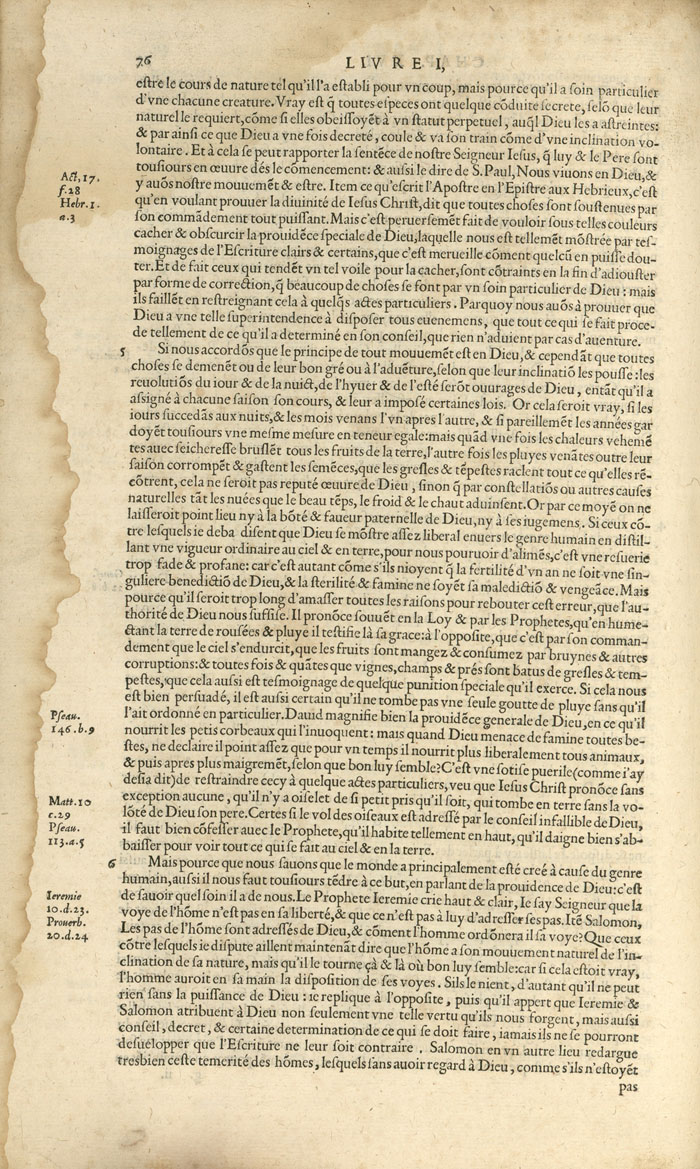 76 LIVRE I,
estre le cours de nature tel qu'il l'a establi pour vn coup, mais pource qu'il a soin particulier
d'vne chacune creature. Vray est q̃ toutes especes ont quelque cõduite secrete, selõ que leur
naturel le requiert, cõme si elles obeissoyẽt à vn statut perpetuel, auq̃l Dieu les a astreintes:
& par ainsi ce que Dieu a vne fois decreté, coule & va son train cõme d'vne inclination vo-
lontaire. Et à cela se peut rapporter la sentẽce de nostre Seigneur Iesus, q̃ luy & le Pere sont
tousiours en œuure dés le cõmencement: & aussi le dire de S. Paul, Nous viuons en Dieu, &
Act, 17.
f. 28
y auõs nostre mouuemẽt & estre. Item ce qu'escrit l'Apostre en l'Epistre aux Hebrieux, c'est
Hebr. 1.
a.3
qu'en voulant prouuer la diuinité de Iesus Christ, dit que toutes choses sont soustenues par
son commãdement tout puissant. Mais c'est peruersemẽt fait de vouloir sous telles couleurs
cacher & obscurcir la prouidẽce speciale de Dieu, laquelle nous est tellemẽt mõstrée par tes-
moignages de l'Escriture clairs & certains, que c'est merueille cõment quelcũ en puisse dou-
ter. Et de fait ceux qui tendẽt vn tel voile pour la cacher, sont cõtraints en la fin d'adiouster
par forme de correctiõn, q̃ beaucoup de choses se font par vn soin particulier de Dieu: mais
ils faillẽt en restreignant cela à quelq̃s actes particuliers. Parquoy nous auõs à prouuer que
Dieu a vne telle superintendence à disposer tous euenemens, que tout ce qui se fait proce-
de tellement de ce qu'il a determiné en son conseil, que rien n'aduient par cas d'auenture.
5 Si nous accordõs que le principe de tout mouuemẽt est en Dieu, & cependãt que toutes
choses se demenẽt ou de leur bon gré ou à l'aduẽture, selon que leur inclinatiõ les pousse: les
reuolutiõs du iour & de la nuict, de l'hyuer & de l'esté serõt ouurages de Dieu, entãt qu'il a
assigné à chacune saison son cours, & leur a imposé certaines lois. Or cela seroit vray, si les
iours succedãs aux nuits, & les mois venans l'vn apres l'autre, & si pareillemẽt les années gar
doyẽt tousiours vne mesme mesure en teneur egale: mais quãd vne fois les chaleurs vehemẽ
tes auec seicheresse bruslẽt tous les fruits de la terre, l'autre fois les pluyes venãtes outre leur
saison corrompẽt & gastent les semẽces, que les gresles & tẽpestes raclent tout ce qu'elles rẽ-
cõtrent, cela ne seroit pas reputé œuure de Dieu, sinon q̃ par constellatiõs ou autres causes
naturelles tãt les nuées que le beau tẽps, le froid & le chaut aduinsent. Or par ce moyẽ on ne
laisseroit point lieu ny à la bõté & faueur paternelle de Dieu, ny à ses iugemens. Si ceux cõ-
tre lesquels ie deba disent que Dieu se mõstre assez liberal enuers le genre humain en distil-
lant vne vigueur ordinaire au ciel & en terre, pour nous pouruoir d'alimẽs, c'est vne resuerie
trop fade & profane: car c'est autant cõme s'ils nioyent q̃ la fertilité d'vn an ne soit vne sin-
guliere benedictiõ de Dieu, & la sterilité & famine ne soyẽt sa maledictiõ & vengeãce. Mais
pource qu'il seroit trop long d'amasser toutes les raisons pour rebouter cest erreur, que l'au-
thorité de Dieu nous suffise. Il pronõce souuẽt en la Loy & par les Prophetes, qu'en hume-
ctant la terre de rousées & pluye il testifie là sa grace: à l'opposite, que c'est par son comman-
dement que le ciel s'endurcit, que les fruits sont mangez & consumez par bruynes & autres
corruptions: & toutes fois & quãtes que vignes, champs & prés sont batus de gresles & tem-
pestes, que cela aussi est tesmoignage de quelque punition speciale qu'il exerce. Si cela nous
est bien persuadé, il est aussi certain qu'il ne tombe pas vne seule goutte de pluye sans qu'il
Pseau.
146.b.9
l'ait ordonné en particulier. Dauid magnifie bien la prouidẽce generale de Dieu, en ce qu'il
nourrit les petis corbeaux qui l'inuoquent: mais quand Dieu menace de famine toutes be-
stes, ne declaire il point assez que pour vn temps il nourrit plus liberalement tous animaux,
& puis apres plus maigremẽt, selon que bon luy semble? C'est vne sotise puerile (comme i'ay
desia dit) de restraindre cecy à quelque actes particuliers, veu que Iesus Christ pronõce sans
Matt.10
c.29
exception aucune, qu'il n'y a oiselet de si petit pris qu'il soit, qui tombe en terre sans la vo-
lõté de Dieu son pere. Certes si le vol des oiseaux est adressé par le conseil infallible de Dieu,
Pseau.
113.a.5
il faut bien cõfesser auec le Prophete, qu'il habite tellement en haut, qu'il daigne bien s'ab-
baisser pour voir tout ce qui se fait au ciel & en la terre.
6 Mais pource que nous sauons que le monde a principalement esté creé à cause du genre
humain, aussi il nous faut tousiours tẽdre à ce but, en parlant de la prouidence de Dieu: c'est
Ieremie
10.d.23.
de sauoir quel soin il a de nous. Le Prophete Ieremie crie haut & clair, Ie say Seigneur que la
voye de l'hõme n'est pas en sa liberté, & que ce n'est pas à luy d'adresser ses pas. Itẽ Salomon,
Prouerb.
20.d.24
Les pas de l'hõme sont adressés de Dieu, & cõment l'homme ordõnera il sa voye? Que ceux
cõtre lesquels ie dispute aillent maintenãt dire que l'hõme a son mouuement naturel de l'in-
clination de sa nature, mais qu'il le tourne çà & là où bon luy semble: car si cela estoit vray,
l'homme auroit en sa main la disposition de ses voyes. S'ils le nient, d'autant qu'il ne peut
rien sans la puissance de Dieu: ie replique à l'opposite, puis qu'il appert que Ieremie &
Salomon atribuent à Dieu non seulement vne telle vertu qu'ils nous forgent, mais aussi
conseil, decret, & certaine determination de ce qui se doit faire, iamais ils ne se pourront
desuelopper que l'Escriture ne leur soit contraire. Salomon en vn autre lieu redargue
tresbien ceste temerité des hõmes, lesquels sans auoir regard à Dieu, comme s'ils n'estoyẽt
pas